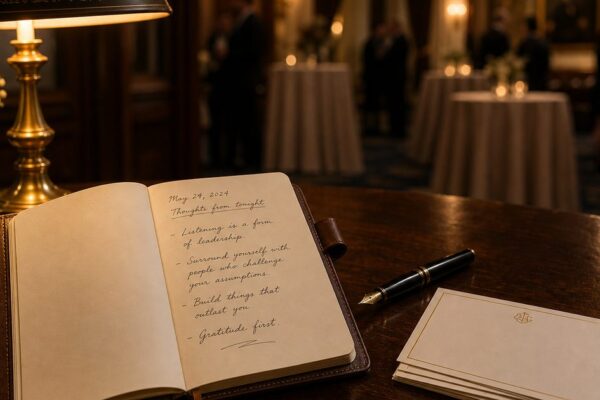 May 24, 2024
Thoughts from tonight
- Listening is a form
of leadership.
- Surround yourself with
people who challenge
your assumptions.
- Build things that
outlast you.
- Gratitude first.